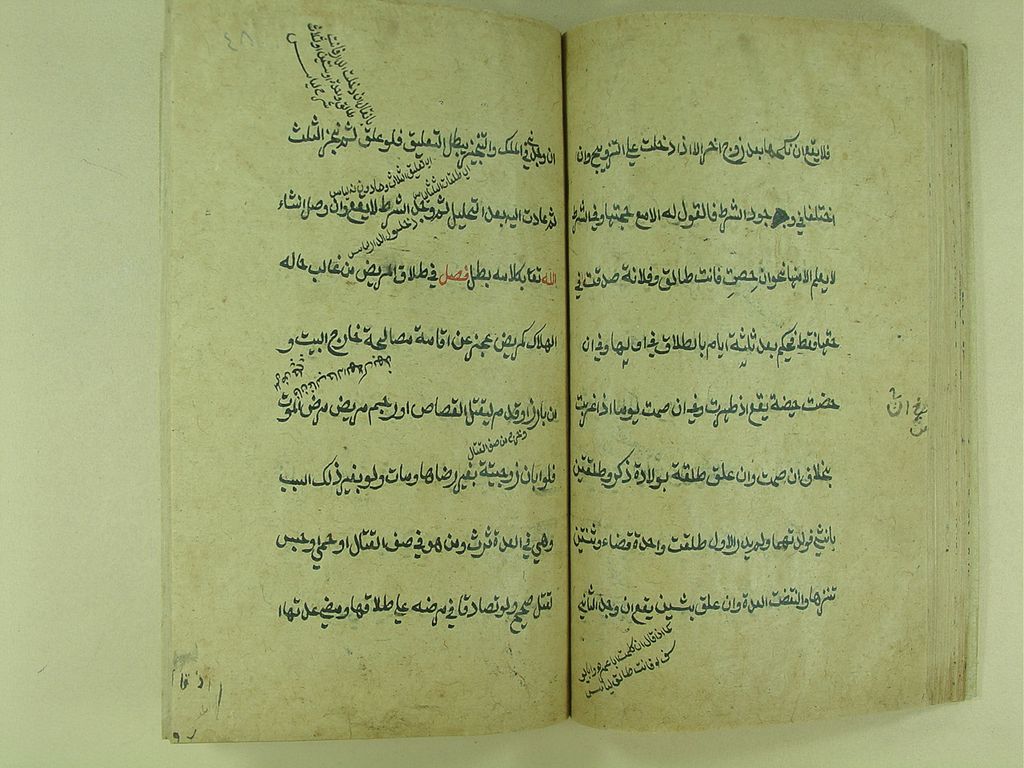 فلا يقع ان نكحها بعد زوج اخر الا اذا دخلت على التزويج وان
اختلفا في وجود الشرط فالقول له الا مع حجتها وفي الشرط
لا يعلم الا منها نحو ان حضت فانت طالق وفلانة صدقت في
حقها فقط فيحكم بعد ثلثة ايام بالطلاق في اولها وفي ان
حضت حيضة يقع اذ طهرت وفي ان صمت يوما اذا غربت
بخلاف ان صمت وان علق طلقة بولادة ذكر وطلقتين
بانثى فولدتهما ولم يدر الاول طلقت واحدة قضاء وثنتين
تنزها وانقضت العدة وان علق بشيئين يقع ان وجد الثاني
ان
كما اذا قال ان كلمت ابا عمرو وابا
يوسف فانت طالق
٤٨
بان قال ان دخلت الدار فانت
طالق واحدة او ثنتين او ثلاث
ان وجد في الملك والتنجيز يبطل التعليق فلو علق ثم نجز الثلث
ثم عادت اليه بعد التحليل ثم وجد الشرط لا يقع وان وصل انشاء
الله تعا بكلامه بطل فصل في طلاق المريض من غالب حاله
الهلاك كمريض عجز عن اقامة مصالحه خارج البيت و
من بارز او قدم ليقتل لقصاص او رجم مريض مرض الموت
وخرج من صف القتال
فلو ابان زوجته بغير رضاها ومات ولو بغير ذلك السبب
وهي في العدة ترث ومن هو في صف القتال او حمى او حبس
لقتل صحيح ولو تصادقا في مرضه على طلاقها ومضي عدتها